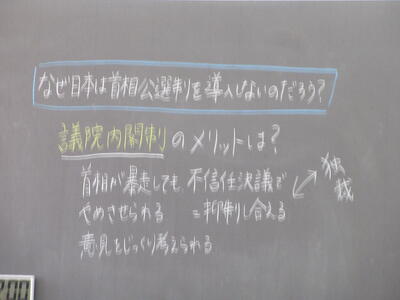 なぜ日本は首相公選制を導入しないのだろう?
議院内閣制のメリットは?
首相が暴走しても不信任決議で
やめさせられる =抑制し合える
独裁
意見をじっくり考えられる
200